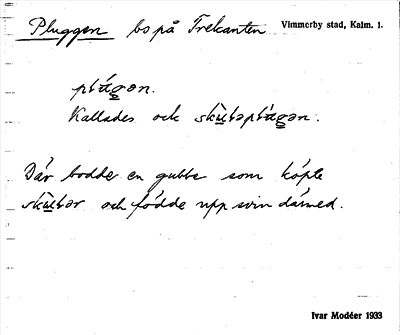 Pluggen bo på Trekanten Vimmerby stad, Kalm. l.
Kallades och
Där bodde en gubbe som köpte
och födde upp svin därmed.
Ivar Modéer 1933